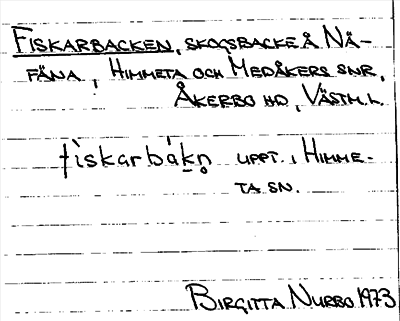 FISKARBACKEN, SKOGSBACKE Å NÅ-
FÄNA, HIMMETA OCH MEDÅKERS SNR,
ÅKERBO HD, VÄSTM. L.
fìskarbákn̥ UPPT. I HIMME-
TA SN.
BIRGITTA NURBO 1973